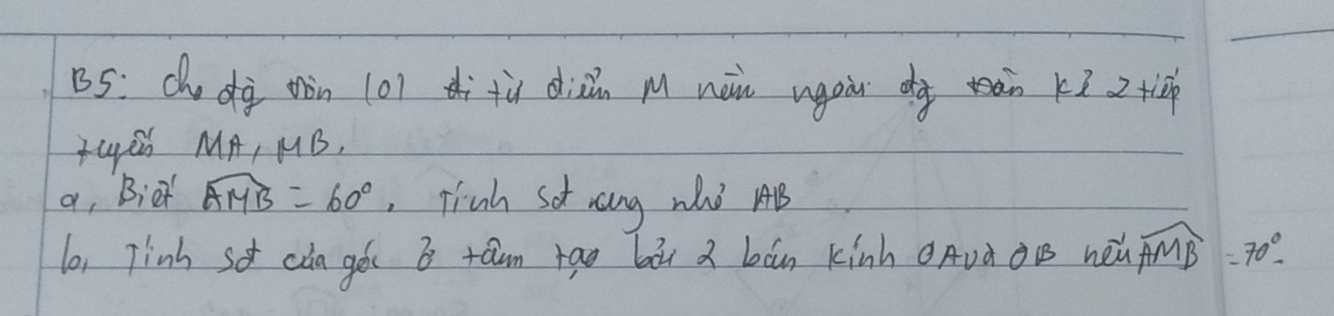 B5: Cho đg tròn (O) từ điểm M nằm ngoài đg tròn kẻ 2 tiếp
tuyến MA, MB.
a, Biết AMB = 60°, Tính sđ cung nhỏ AB
b, Tính sđ của góc ở tâm tạo bởi 2 bán kính OA và OB nếu AMB = 70°.